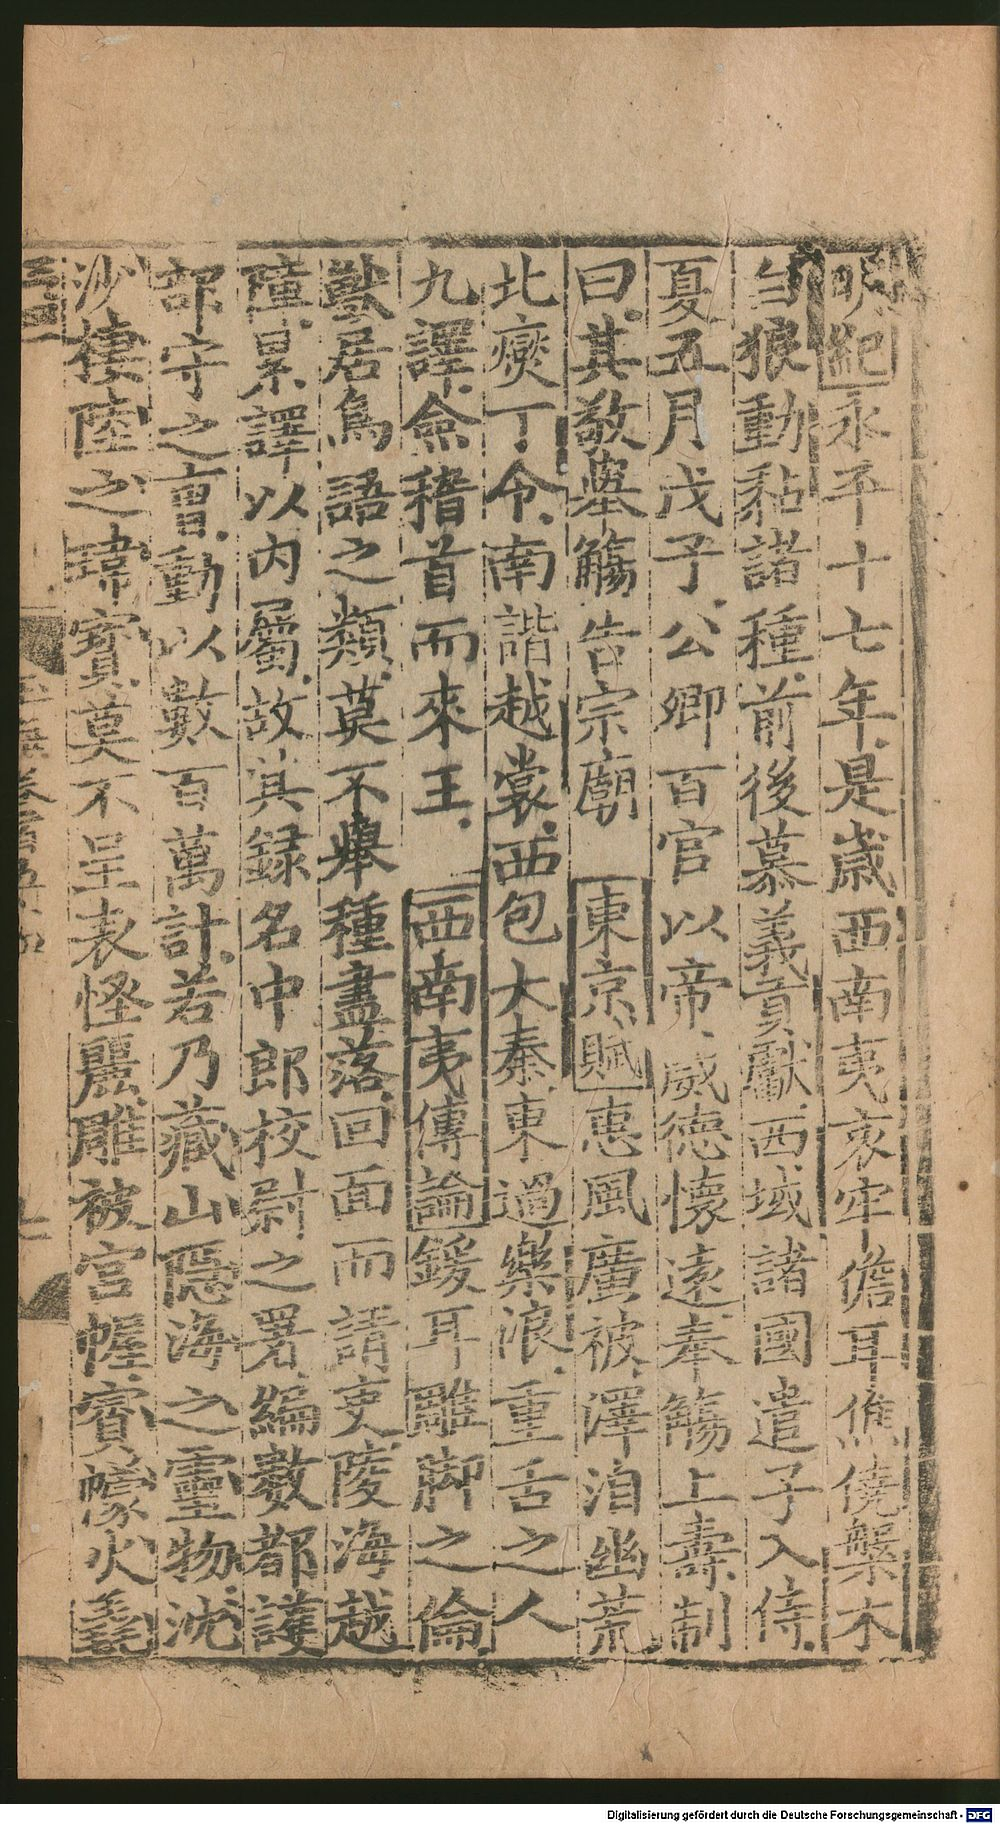 明紀永平十七年是歲西南夷哀牢儋耳僬僥槃木
白狼動黏諸種前後慕義貢獻西域諸國遣子入侍
夏五月戊子公卿百官以帝威德懷遠奉觴上壽制
曰其敬舉觴告宗廟 東京賦惠風廣被澤洎幽荒
北燮丁令南諧越裳西包大秦東過樂浪重舌之人
九譯僉稽首而來王 西南夷傳論鍰耳雕脚之倫
獸居鳥語之類莫不舉種盡落回面而請吏陵海越
障累譯以内屬故其録名中郎校尉之署編數都護
部守之曹動以數百萬計若乃藏山隱海之靈物沈
沙棲陸之瑋寶莫不呈表怪麗雕被宮幄賓幏火毳
Digitalisierung gefördert durch die Deutsche Forschungsgemeinschaft - DFG